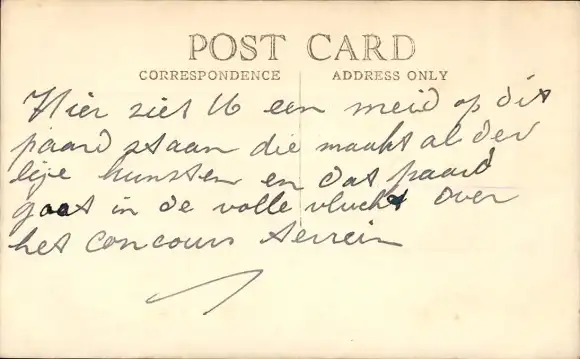 POST CARD
CORRESPONDENCE ADDRESS ONLY
Hier ziet U een meid op dit
paard staan die maakt al der
leje kunsten en dat paard
gaat in de volle vlucht over
het concours terrein